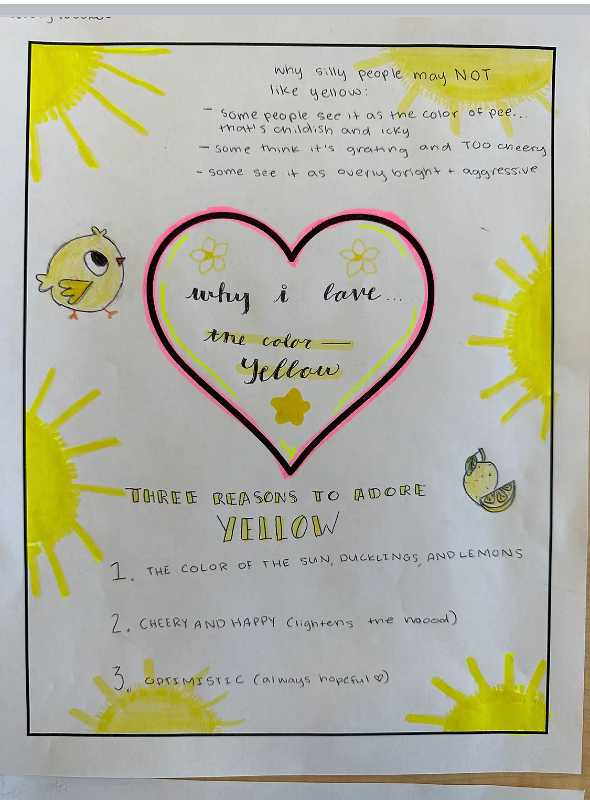 why silly people may NOT
like yellow:
- some people see it as the color of pee...
that's childish and icky
- some think it's grating and TOO cheery
- some see it as overly bright + aggressive
why i love...
the color —
Yellow
THREE REASONS TO ADORE
YELLOW
1. THE COLOR OF THE SUN, DUCKLINGS, AND LEMONS
2. CHEERY AND HAPPY (lightens the mooood)
3. OPTIMISTIC (always hopeful ♡)